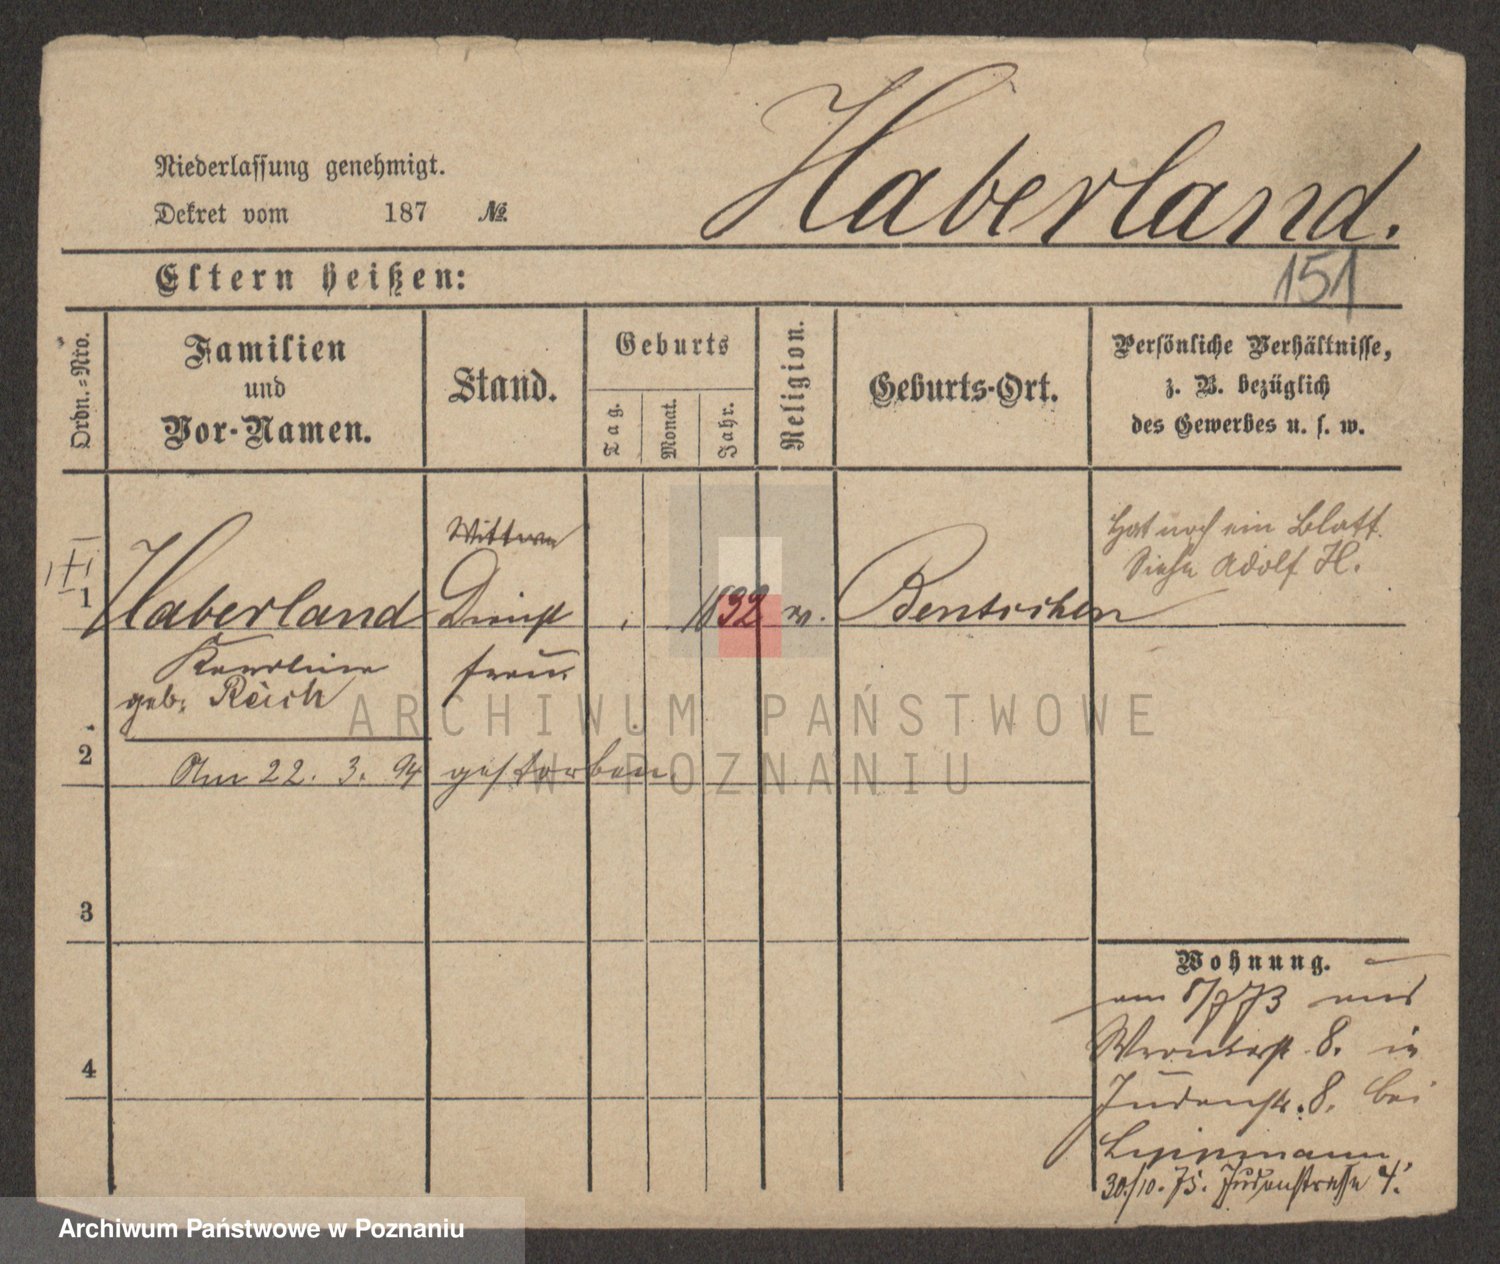 Haberland.
Niederlassung genehmigt.
Dekret vom 187 №.
151
Eltern heißen:
Ordn.-Nro.
Familien
und
Vor-Namen.
Stand.
Geburts
Tag.
Monat.
Jahr.
Religion.
Geburts-Ort.
Persönliche Verhältnisse,
z. B. bezüglich
des Gewerbes u. s. w.
Hat noch ein Blatt.
Siehe Adolf H.
Wittwe
1 Haberland Dienst 1832 Bentschen
Karoline frau
geb. Reich
2 Am 22. 3. 94 gestorben.
3
4
Wohnung.
am 73 aus
8. in
Judenstr. 8. bei
Lippmann
30/10. 75. Judenstrasse 4.
ARCHIWUM PAŃSTWOWE
W POZNANIU
Archiwum Państwowe w Poznaniu